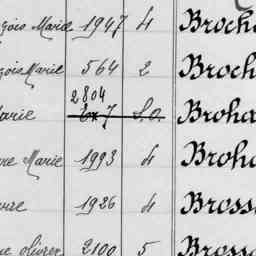 çois Marie 1947 4 Broch
çois Marie 564 2 Broch
2804
Marie S.O. Broha
re Marie 1993 4 Broha
1926 4 Bross
Olivier 2100 5 Bross